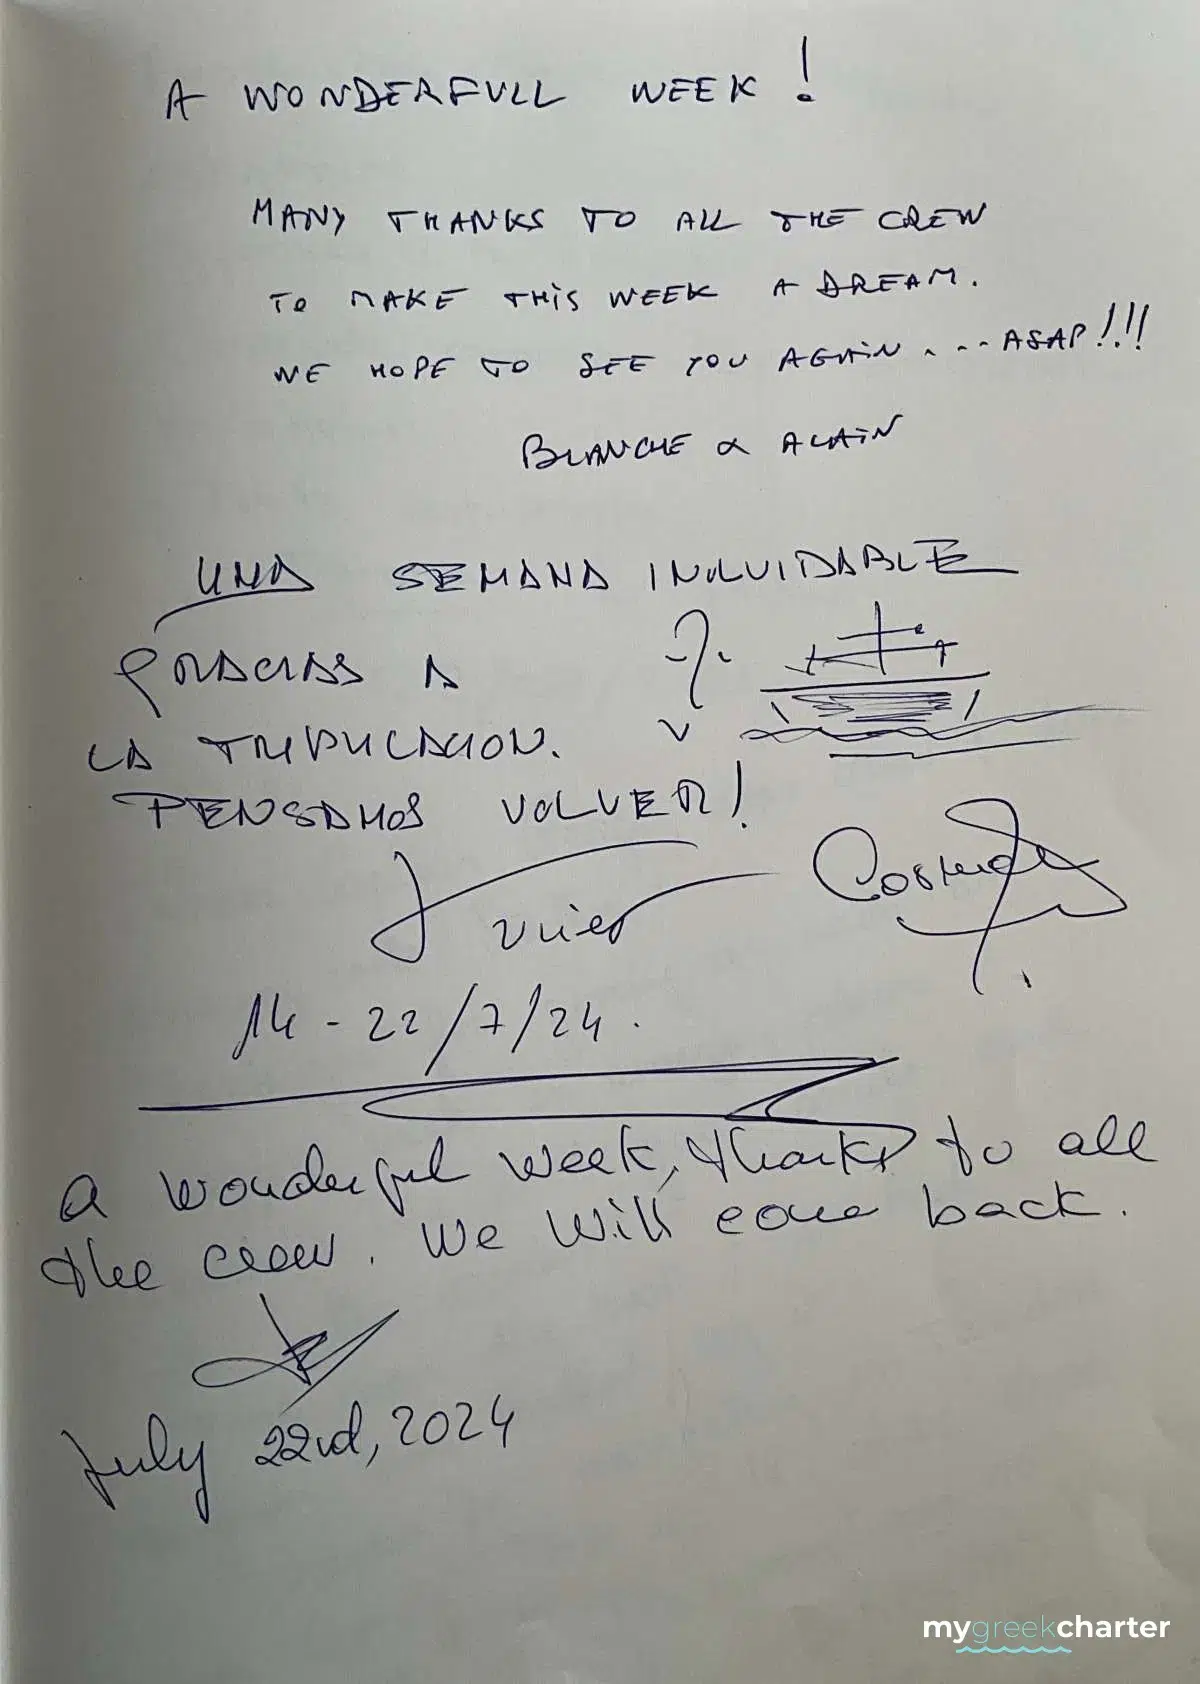 A WONDERFULL WEEK!
MANY THANKS TO ALL THE CREW
TO MAKE THIS WEEK A DREAM.
WE HOPE TO SEE YOU AGAIN . . . . ASAP!!!!
BLANCHE & ALAIN
UNA SEMANA INOLVIDABLE
GRACIAS A
LA TRIPULACION.
PENSAMOS VOLVER!
14 - 22/7/24.
A wonderful week, thanks to all
the crew. We will come back.
July 22nd, 2024
mygreekcharter